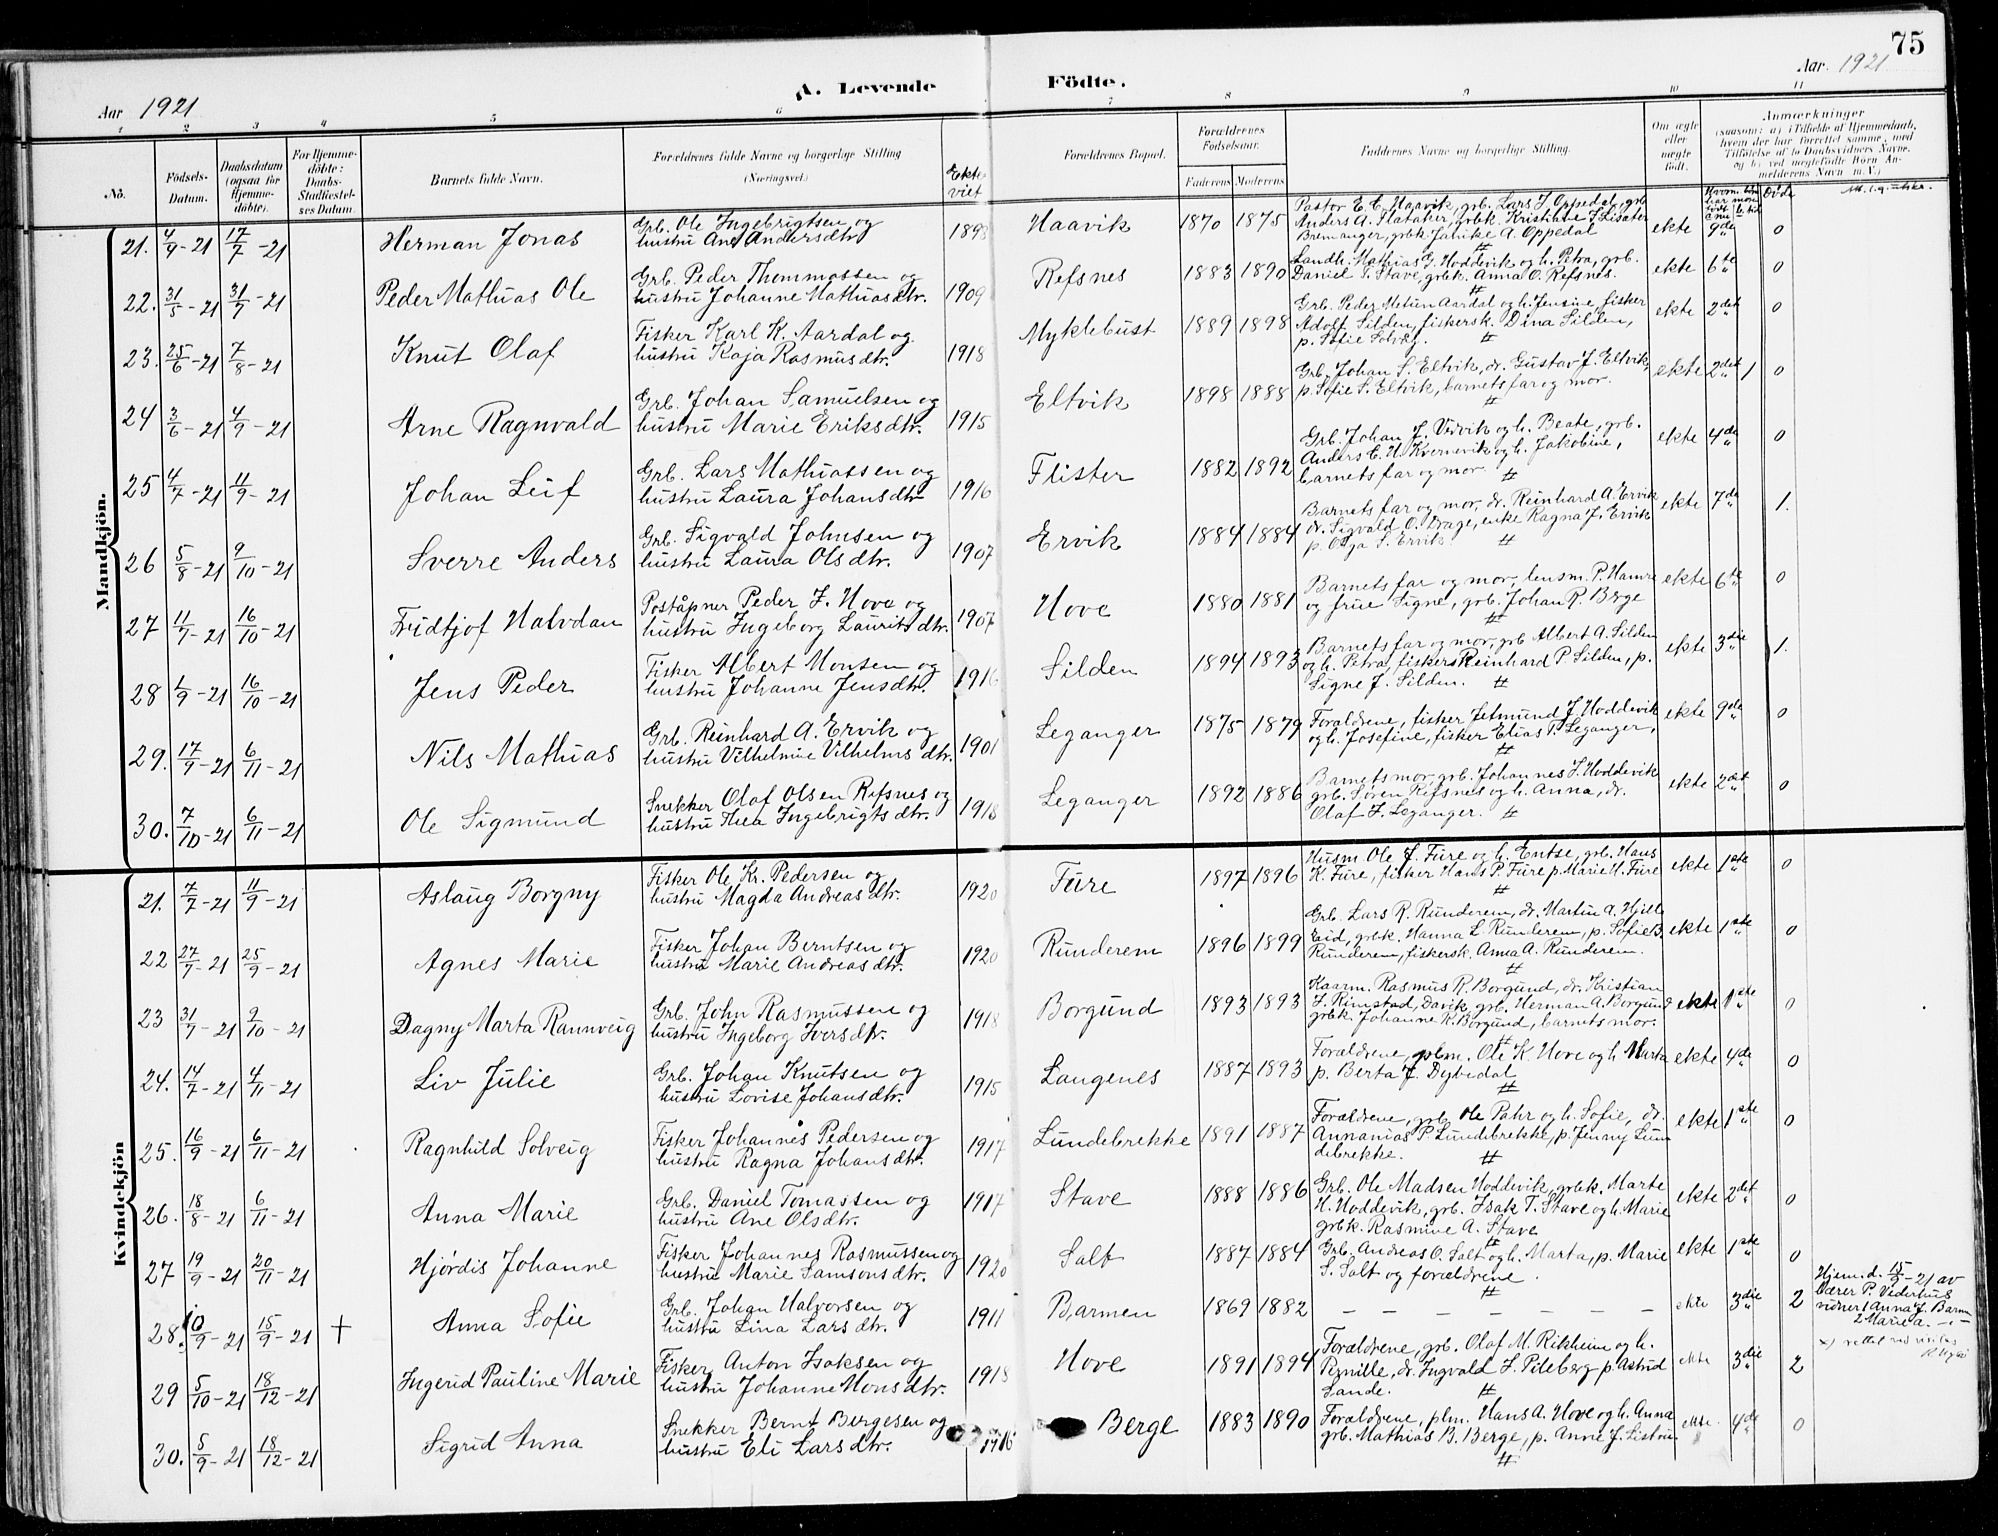 75
Aar 1921
A. Levende
Födte.
Aar. 1921
1 2 3 4 5 6 7 8 9 10 11
Nö.
Födsels-Datum.
Daabsdatum (ogsaa for Hjemme-döbte).
For Hjemme-döbte: Daabs-Stadfæstel-ses Datum.
Barnets fulde Navn.
Forældrenes fulde Navne og borgerlige Stilling (Næringsvei.)
Ekte-viet
Forældrenes Bopæl.
Forældrenes Födselsaar.
Faderens Moderens
Faddernes Navne og borgerlige Stilling.
Om ægte eller uægte födt.
Anmærkninger
(saasom: a) i Tilfælde af Hjemmedaab, hvem der har forrettet samme, med Tilföielse af to Daabsvidners Navne, og b) ved uegtefödte Börn An-melderens Navn m. V.)
Mandkjön.
21. 4/9-21 17/7-21 Herman Jonas Grb. Ole Ingebrigtsen og hustru Ane Andersdtr. 1893 Haavik 1870 1875 Pastor E. E. Haavik, grb. Lars J. Oppedal, grb. Anders A. Flataker, grbk. Kristiane J. Lisæter Bremanger, grbk. Janike A. Oppedal ekte 9de 0
22. 31/5-21 31/7-21 Peder Mathias Ole Grb. Peder Thommassen og hustru Johanne Mathiasdtr. 1909 Refsnes 1883 1890 Landh. Mathias G. Hoddevik og h. Petra, grb. Daniel T. Stave, grbk. Anna O. Refsnes. ekte 6te 0
23. 25/6-21 7/8-21 Knut Olaf Fisker Karl K. Aardal og hustru Kaja Rasmusdtr. 1918 Myklebust 1889 1898 Grb. Peder Metun Aardal og h. Jensine, fisker Adolf Silden, fiskersk. Dina Silden, p. Sofie Solvåg. ekte 2det 0
24 3/6-21 4/9-21 Arne Ragnvald Grb. Johan Samuelsen og hustru Marie Eriksdtr. 1915 Eltvik 1898 1888 Grb. Johan S. Eltvik, dr. Gustav J. Eltvik, p. Sofie S. Eltvik, barnets far og mor. ekte 2det 1 0
25 4/7-21 11/9-21 Johan Leif Grb. Lars Mathiassen og hustru Laura Johansdtr 1916 Flister 1882 1892 Grb. Johan J. Vervik og h. Beate, grb. Anders E. H. Kvernevik og h. Jakobine, barnets far og mor. ekte 4de 0
26 5/8-21 9/10-21 Sverre Anders Grb. Sigvald Johnsen og hustru Laura Olsdtr. 1907 Ervik 1884 1884 Barnets far og mor, dr. Reinhard A. Ervik dr. Sigvald O. Drage, enke Ragna J. Ervik p. Olga S. Ervik. ekte 7de 1.
27 11/7-21 16/10-21 Fridtjof Halvdan Poståpner Peder J. Hove og hustru Ingeborg Lauritsdtr. 1907 Hove 1880 1881 Barnets far og mor, lensm. P. Hamre og frue Signe, grb. Johan R. Berge ekte 6te 0
28 1/9-21 16/10-21 Jens Peder Fisker Albert Monsen og hustru Johanne Jensdtr. 1916 Silden 1894 1893 Barnets far og mor, grb Albert A. Silden og h. Petra, fiskers Reinhard P. Silden, p. Signe J. Silden. ekte 3die 1.
29. 17/9-21 6/11-21 Nils Mathias Grb. Reinhard A. Ervik og hustru Vilhelmine Vilhelmsdtr. 1901 Leganger 1875 1879 Forældrene, fisker Jetmund J. Hoddevik og h. Josefine, fisker Elias P. Leganger, ekte 9de 0
30. 7/10-21 6/11-21 Ole Sigmund Snekker Olaf Olsen Refsnes og hustru Thea Ingebrigtsdtr. 1918 Leganger 1892 1886 Barnets mor, grb. Johannes J. Hoddevik grb. Søren Refsnes og h. Anna, dr. Olaf J. Leganger. ekte 2det 0
Kvindekjön
21. 7/7-21 11/9-21 Aslaug Borgny Fisker Ole Kr. Pedersen og hustru Magda Andreasdtr. 1920 Fure 1897 1896 Husm Ole J. Fure og h. Entse, grb. Hans K. Fure, fisker Hans P. Fure p. Marie H. Fure ekte 1ste 0
22 27/7-21 25/9-21 Agnes Marie Fisker Johan Berntsen og hustru Marie Andreasdtr. 1920 Runderem 1896 1899 Grb. Lars R. Runderem, dr. Martin A. Hjelle Eid, grbk. Hanna L. Runderem, p. Sofie B. Runderem, fiskersk. Anna A. Runderem. ekte 1ste 0
23 31/7-21 2/10-21 Dagny Marta Rannveig Grb. John Rasmussen og hustru Ingeborg Iversdtr. 1918 Borgund 1893 1893 Kaarm. Rasmus R. Borgund, dr. Kristian J. Rimstad, Davik, grb. Herman A. Borgund grbk. Johanne R. Borgund, barnets mor. ekte 1ste 0
24. 14/7-21 4/11-21 Liv Julie Grb. Johan Knutsen og hustru Lovise Johansdtr. 1915 Langenes 1887 1893 Forældrene, plm. Ole K. Hove og h. Marta p. Berta J. Dybedal ekte 4de 0
25. 16/9-21 6/11-21 Ragnhild Solveig Fisker Johannes Pedersen og hustru Ragna Johansdtr. 1917 Lundebrekke 1891 1887 Forældrene, grb. Ole Pahr og h. Sofie, dr. Annanias P. Lundebrekke, p. Jenny Lundebrekke. ekte 1ste 0
26. 18/8-21 6/11-21 Anna Marie Grb. Daniel Tomassen og hustru Ane Olsdtr. 1917 Stave 1888 1886 Grb. Ole Madsen Hoddevik, grbk. Marte H. Hoddevik, grb. Isak T. Stave og h. Marie grbk. Rasmine A. Stave ekte 2det 0
27 19/9-21 20/11-21 Hjørdis Johanne Fisker Johannes Rasmussen og hustru Marie Samsonsdtr. 1920 Salt 1887 1884 Grb. Andreas O. Salt og h. Marta, p. Marie S. Salt og forældrene ekte 1ste 0
28. 10/9-21 15/9-21 + Anna Sofie Grb. Johan Halvorsen og hustru Lina Larsdtr. 1911 Barmen 1869 1882 — — — — — — — ekte 3die 2 Hjem. d. 15/9-21 av Lærer P. Vederhus vidner 1 Anna J. Barm 2 Marie A. —"—
29 5/10-21 18/12-21 Ingerid Pauline Marie Fisker Anton Isaksen og hustru Johanne Monsdtr. 1918 Hove 1891 1894 Forældrene, grb. Olaf M. Rikheim og h. Pernille, dr. Ingvald J. Pileberg p. Astrid Sande. ekte 3die 2
30. 5/9-21 18/12-21 Sigrid Anna Snekker Bernt Bergesen og hustru Eli Larsdtr. 1916 Berge 1883 1890 Forældrene, plm. Hans A. Hove og h. Anna grb. Mathias B. Berge, p. Anne J. Listru ekte 4de 0